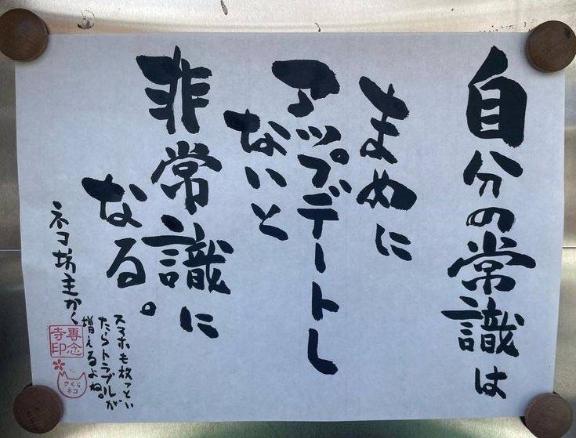 自分の常識は
まめに
アップデートし
ないと
非常識に
なる。
ネコ坊主かく
スマホも放っとい
たらトラブルが
増えるよね。
専念
寺印
さくら
ネコ